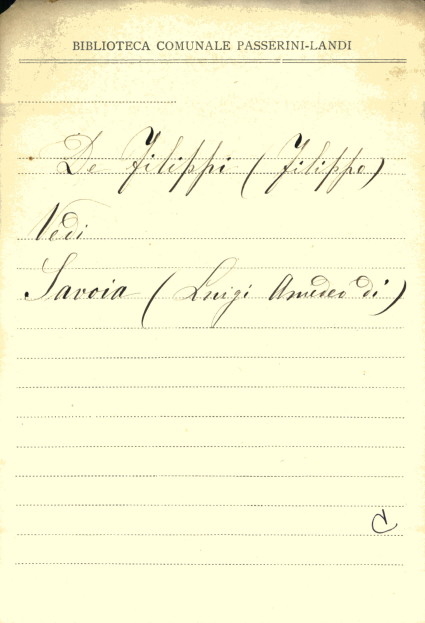 BIBLIOTECA COMUNALE PASSERINI-LANDI
De Filippi (Filippo)
Vedi
Savoia (Luigi Amedeo di)
C